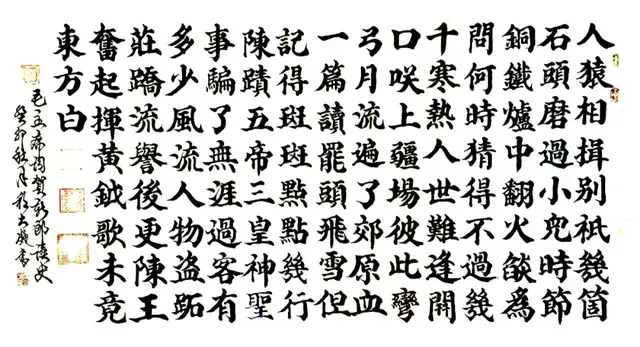 人猿相揖別祇幾箇
石頭磨過小兒時節
銅鐵爐中翻火燄為
問何時猜得不過幾
千寒熱人世難逢開
口咲上疆場彼此彎
弓月流遍了郊原血
一篇讀罷頭飛雪但
記得斑斑點點幾行
陳蹟五帝三皇神聖
事騙了無涯過客有
多少風流人物盜跖
莊蹻流譽後更陳王
奮起揮黃鉞歌未竟
東方白
毛主席詞賀新郎讀史
癸卯秋月書